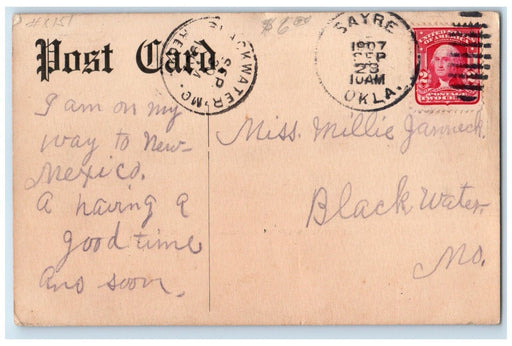 #1151
$6.00
Post Card
BLACKWATER. MO. REC'D
SEP
SAYRE
1907
SEP
23
10AM
OKLA.
UNITED STATES
OF AMERICA
2 2
POSTAGE
TWO CENTS
I am on my
way to New
Mexico.
a having a
good time
ans soon.
Miss. Millie Janneck.
Black Water.
Mo.